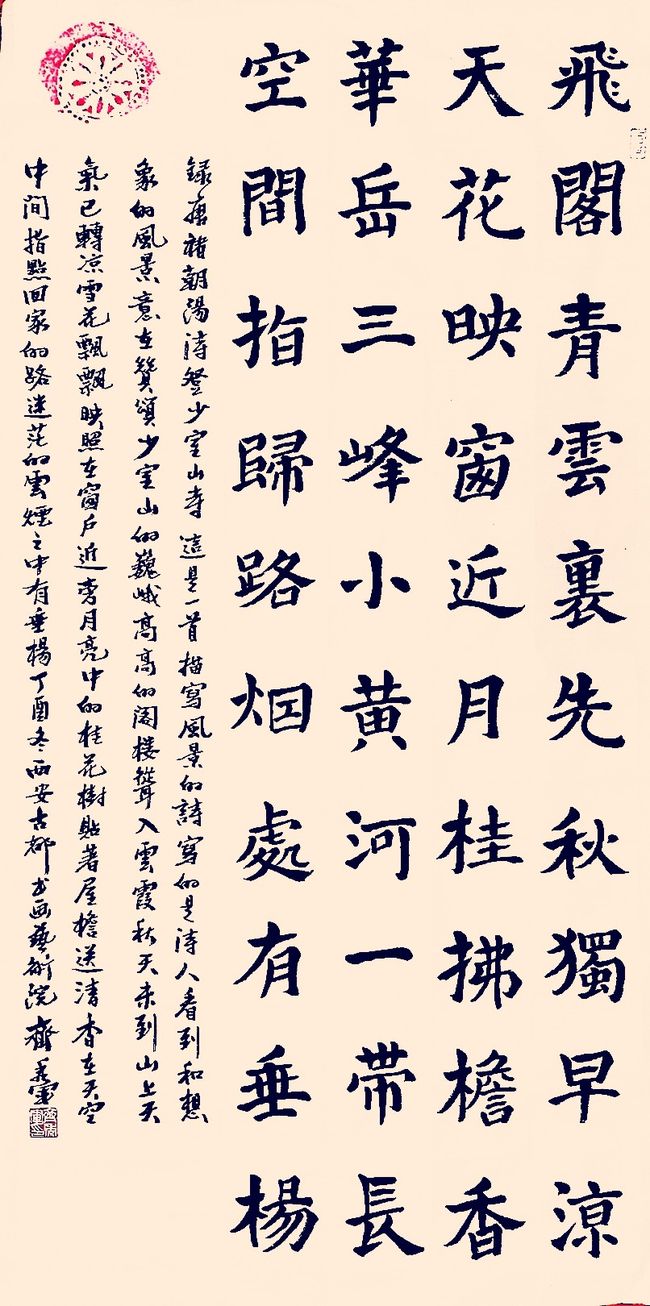 飛閣青雲裏先秋獨早涼
天花映窗近月桂拂檐香
華岳三峰小黄河一帶長
空間指歸路烟處有垂楊
錄唐褚朝陽詩登少室山寺 這是一首描寫風景的詩寫的是詩人看到和想
象的風景意在贊頌少室山的巍峨高高的閣樓聳入雲霞秋天未到山上天
氣已轉涼雪花飄飄映照在窗戶近旁月亮中的桂花樹貼著屋檐送清香在天空
中間指點回家的路迷茫的雲煙之中有垂楊丁酉冬西安古都书画藝術院齊